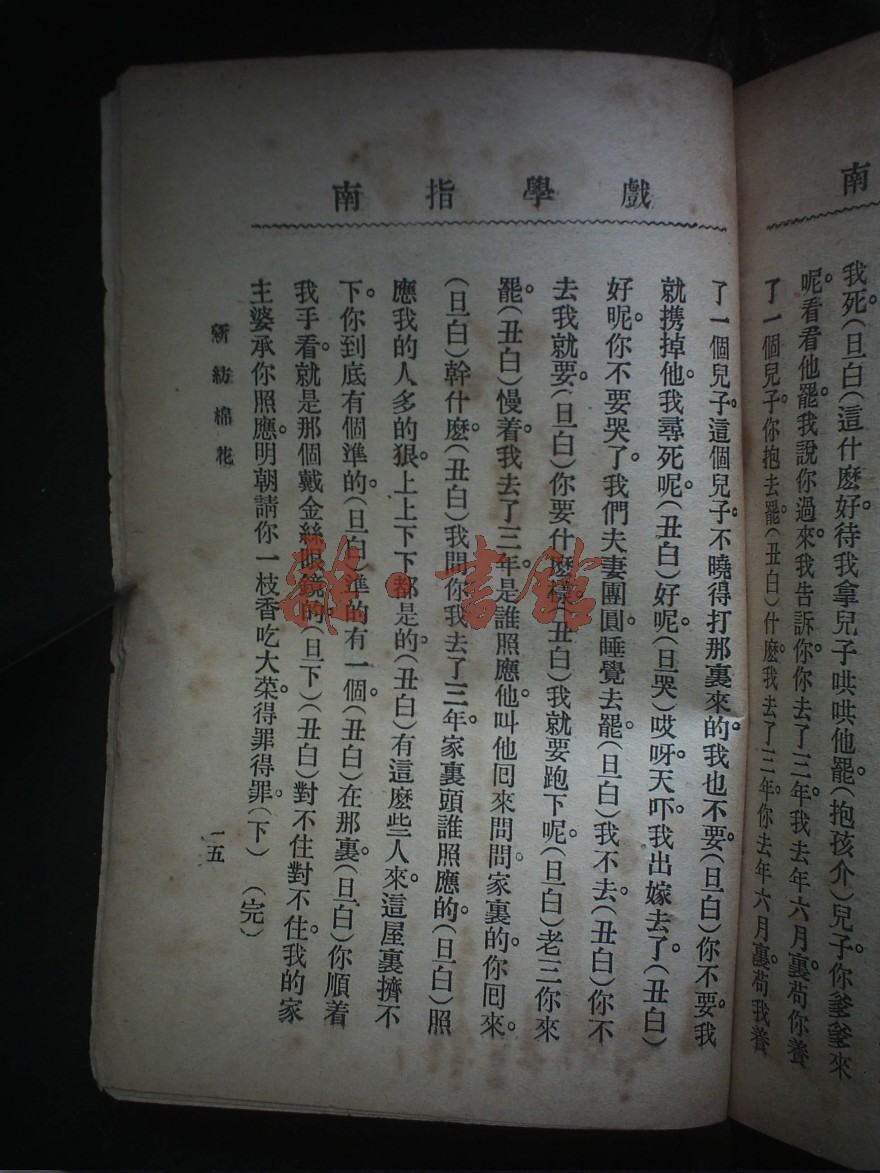 南
我死。(旦白)這什麽好。待我拿兒子哄哄他罷。(抱孩介)兒子。你爹爹來
呢。看看他罷。我說你過來。我告訴你。你去了三年。我去年六月裏。苟你養
了一個兒子。你抱去罷。(丑白)什麽。我去了三年。你去年六月裏。苟我養
戲學指南
了一個兒子。這個兒子。不曉得打那裏來的。我也不要。(旦白)你不要。我
就㩦掉他。我尋死呢。(丑白)好呢。(旦哭)哎呀天吓。我出嫁去了。(丑白)
好呢。你不要哭了。我們夫妻團圓。睡覺去罷。(旦白)我不去。(丑白)你不
去我就要。(旦白)你要什麽樣。(丑白)我就要跑下呢。(旦白)老三你來
罷。(丑白)慢着。我去了三年。是誰照應。他叫他囘來問問。家裏的。你囘來。
(旦白)幹什麽。(丑白)我問你。我去了三年。家裏頭誰照應的。(旦白)照
應我的人多的狠。上上下下都是的。(丑白)有這麽些人來。這屋裏擠不
下。你到底有個準的。(旦白)準的有一個。(丑白)在那裏。(旦白)你順着
我手看。就是那個戴金絲眼鏡的。(旦下)(丑白)對不住對不住。我的家
主婆承你照應。明朝請你一枝香吃大菜。得罪得罪。(下) (完)
新紡棉花
一五
雜·書館